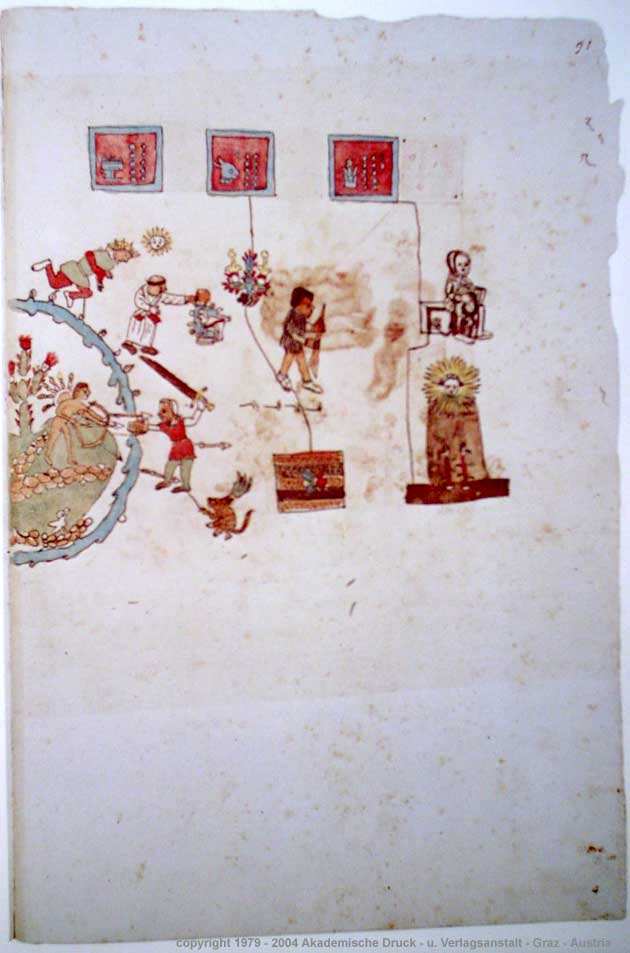 91
copyright 1979 - 2004 Akademische Druck - u. Verlagsanstalt - Graz - Austria